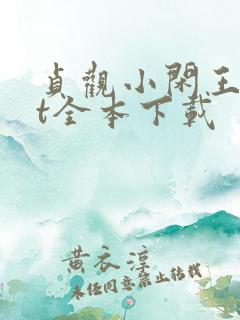 贞觀小閑王
t全本下載
黄衣淳
未经同意禁止转载